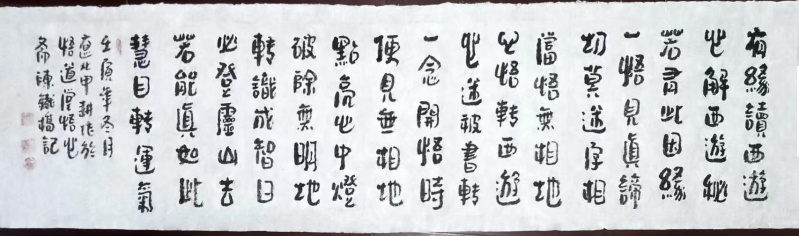 有緣讀西遊
心解西遊秘
若有此因緣
一悟見眞諦
切莫迷浮相
當悟無相地
心悟轉西遊
心迷被書轉
一念開悟時
便見無相地
點亮心中燈
破除無明地
轉識成智日
必登靈山去
若能眞如此
慧目轉運氣
壬寅年冬月
北甲耕作於
悟道堂悟心
齋陳鐵楊記